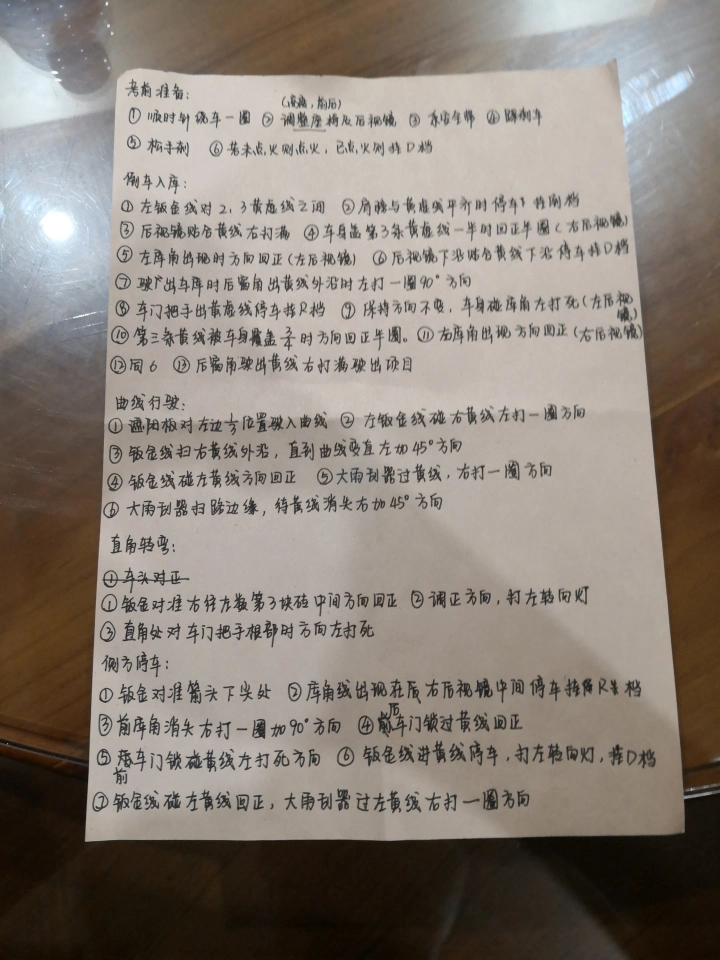 考前准备:
(高低,前后)
① 顺时针绕车一圈 ② 调整座椅及后视镜 ③ 系安全带 ④ 踩刹车
⑤ 松手刹 ⑥ 若未点火则点火,已点火则挂D档
倒车入库:
① 左钣金线对2,3黄虚线之间 ② 肩膀与黄虚线平齐时停车,挂倒档
③ 后视镜贴合黄线右打满 ④ 车身盖第3条黄虚线一半时回正半圈(右后视镜)
⑤ 左库角出现时方向回正(左后视镜) ⑥ 后视镜下沿贴合黄线下沿停车挂D档
⑦ 驶出车库时后窗角出黄线外沿时左打一圈90°方向
⑧ 车门把手出黄虚线停车挂R档 ⑨ 保持方向不变,车身碰库角左打死(左后视镜)
⑩ 第三条黄线被车身覆盖3/4时方向回正半圈。⑪ 右库角出现方向回正(右后视镜)
⑫ 同6 ⑬ 后窗角驶出黄线右打满驶出项目
曲线行驶:
① 遮阳板对左边1/3位置驶入曲线 ② 左钣金线碰右黄线左打一圈方向
③ 钣金线扫右黄线外沿,直到曲线变直左加45°方向
④ 钣金线碰左黄线方向回正 ⑤ 大雨刮器过黄线,右打一圈方向
⑥ 大雨刮器扫路边缘,待黄线消失右加45°方向
直角转弯:
① 车头对正
① 钣金对准右往左数第3块砖中间方向回正 ② 调正方向,打左转向灯
③ 直角处对车门把手根部时方向左打死
侧方停车:
① 钣金对准箭头下尖处 ② 库角线出现在右后视镜中间停车挂R档
③ 前库角消失右打一圈加90°方向 ④ 后车门锁过黄线回正
⑤ 前车门锁碰黄线左打死方向 ⑥ 钣金线进黄线停车,打左转向灯,挂D档
⑦ 钣金线碰左黄线回正,大雨刮器过左黄线右打一圈方向